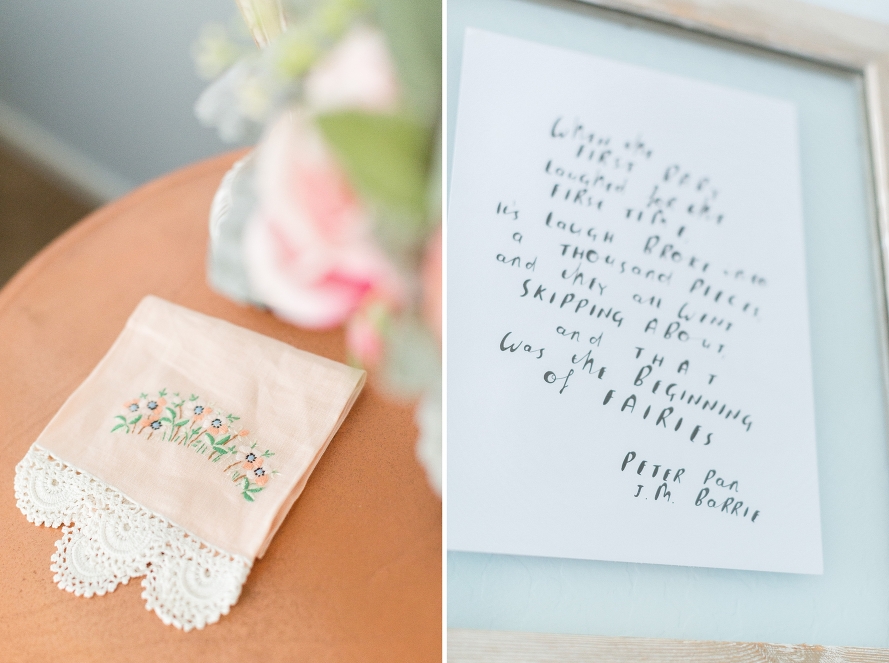 When the
FIRST BABY
Laughed for the
FIRST TIME
It's LAUGH BROKE into
a THOUsand PIECES.
and they all WENT
SKIPPING ABOUT.
and THAT
Was the BEGINNING
of FAIRIES
PETER Pan
J.M. BaRRIE